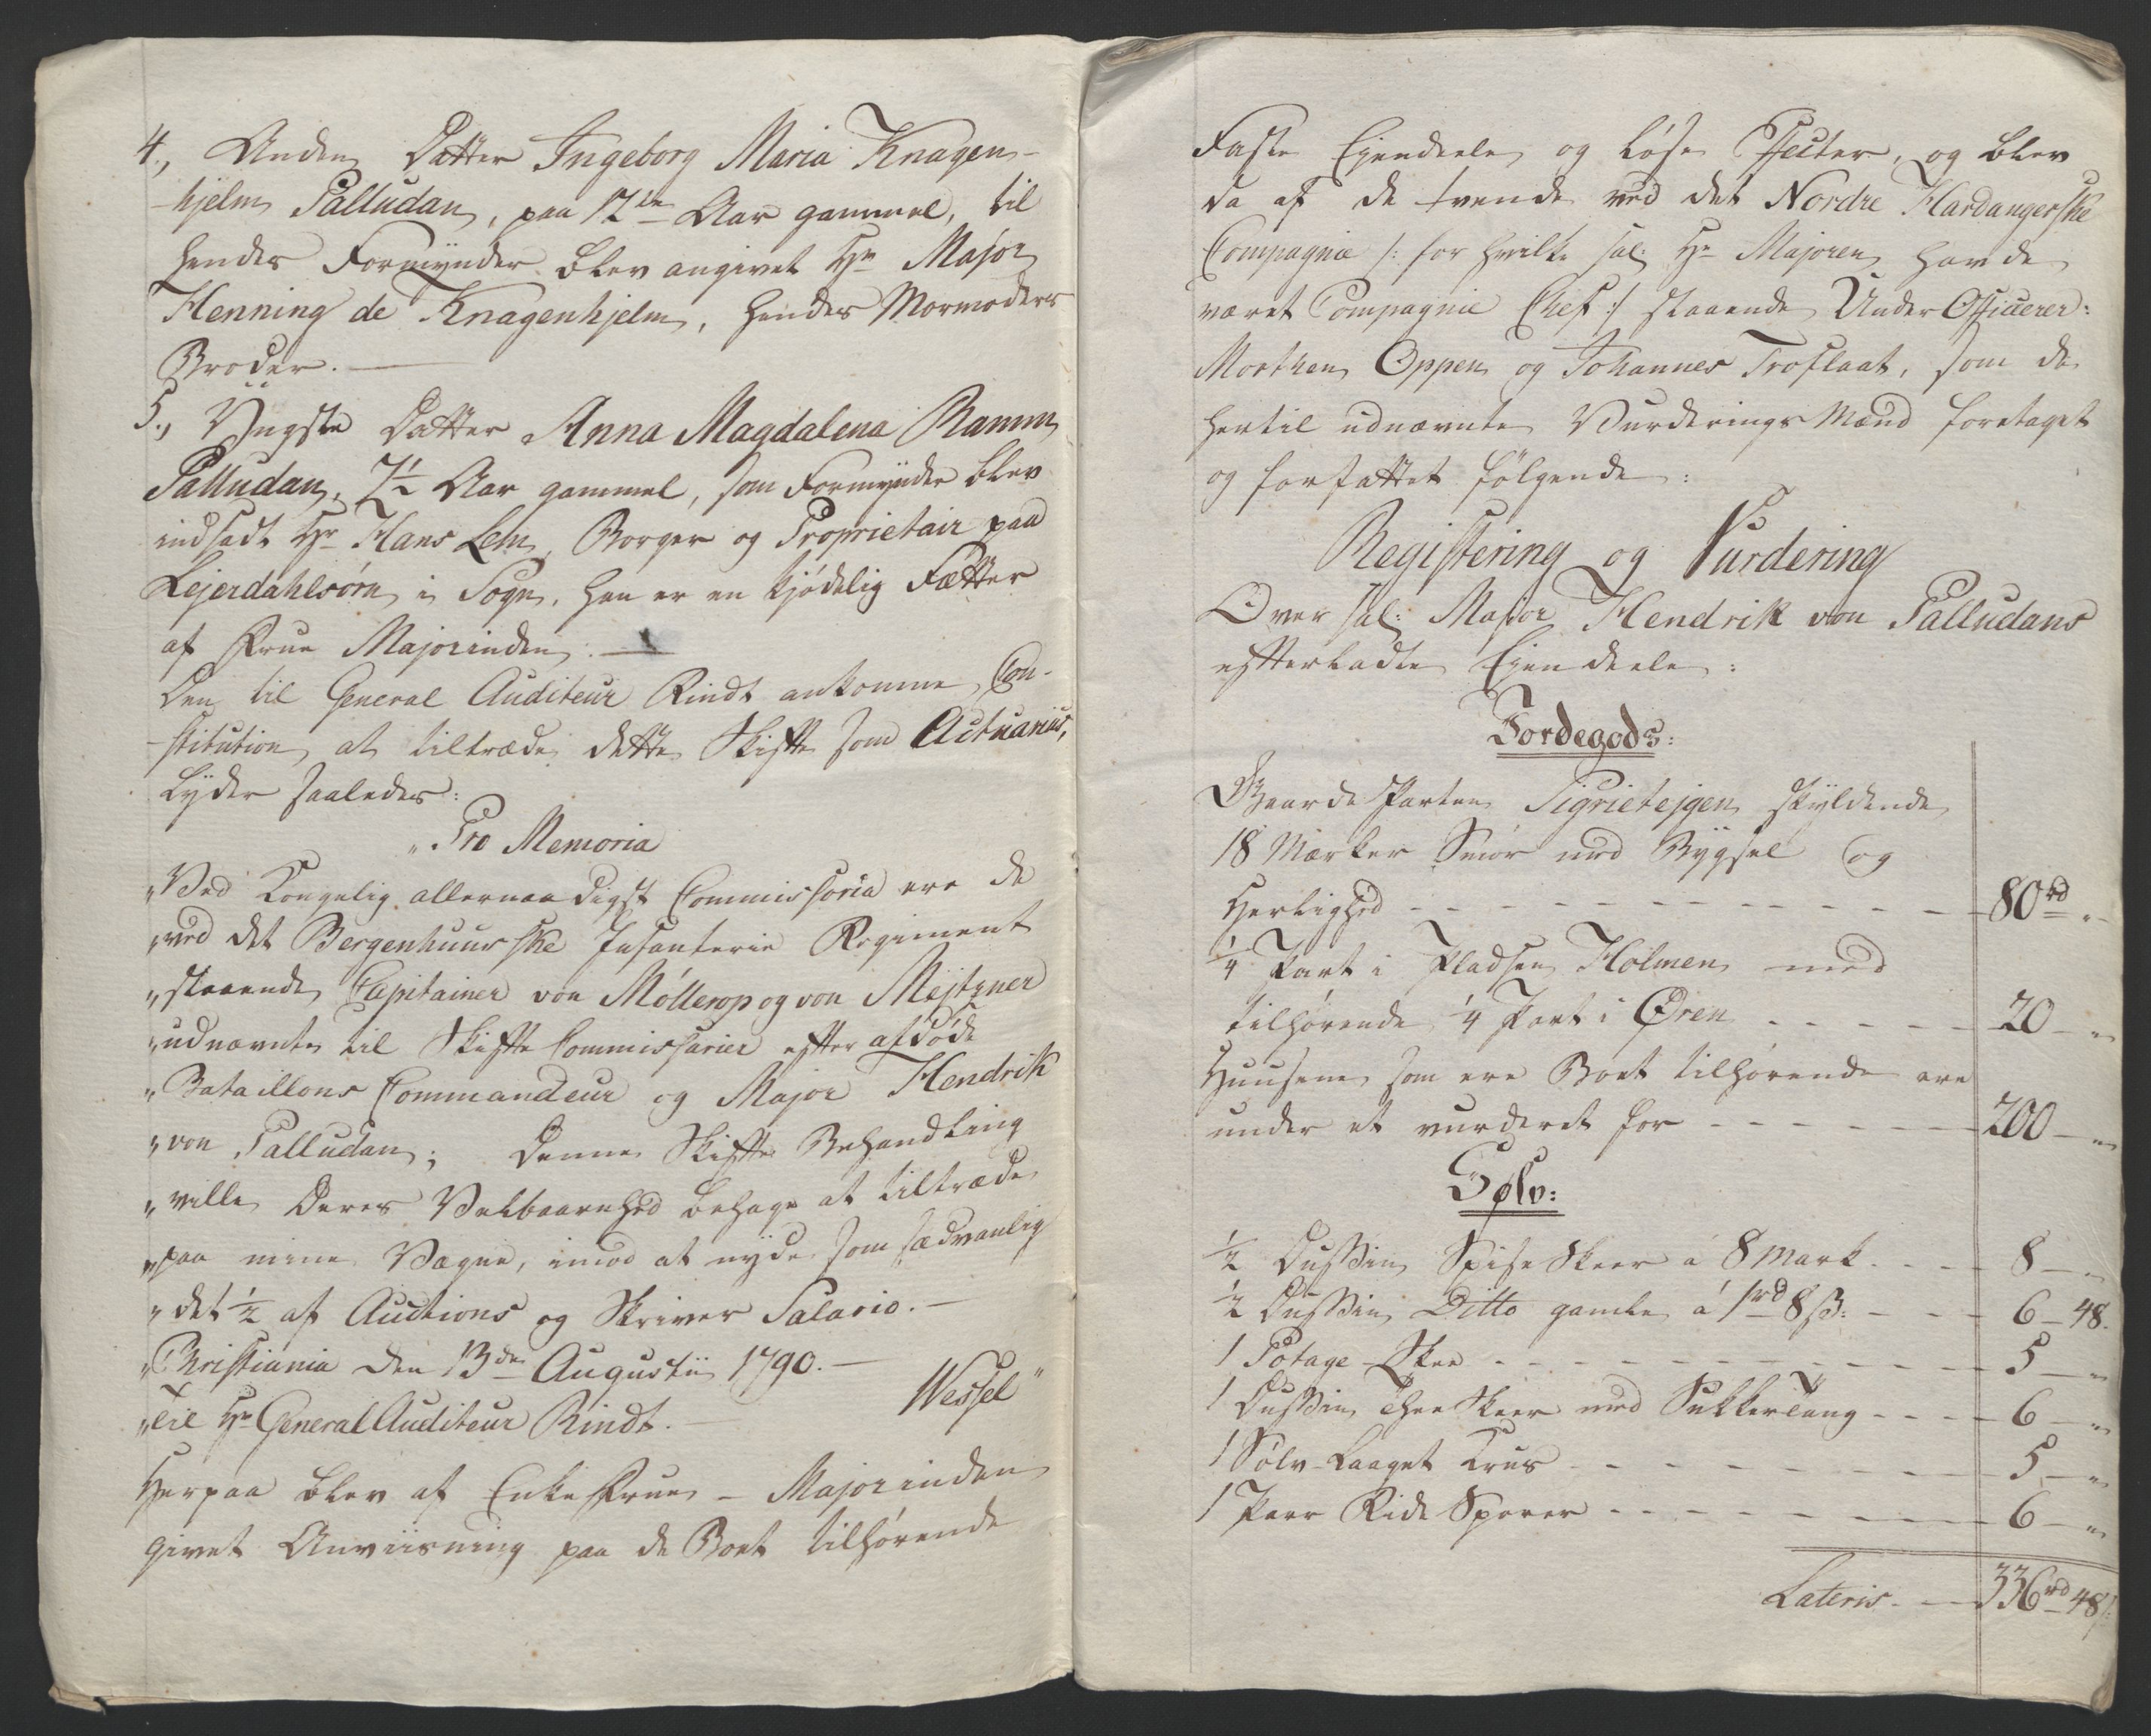 4., Anden Datter Ingeborg Maria Knagen-
-hjelm Palludan, paa 12te Aar gammel, til
hendes Formynder blev angivet Hr Major
Henning de Knagenhjelm, hendes Mormoders
Broder.
5., Yngste Datter Anna Magdalena Ramm
Palludan, 7½ Aar gammel, som Formynder blev
indsadt Hr Hans Lem, Borger og Proprietair paa
Lejerdahlsørn i Sogn, han er en kjødelig Fætter
af Frue Majorinden.
Den til General Auditeur Rindt ankomne Con-
-stitution, at tiltræde dette Skifte som Actuarius,
lyder saaledes:
„Pro Memoria
„Ved Kongelig allernaadigst Commissoria ere de
„ved det Bergenhuusske Infanterie Regiment
„staaende Capitainer von Møllerop og von Mejtzner
„udnævnte til Skifte Commissarier efter afdøde
„Bataillons Commandeur og Major Hendrik
„von Palludan; Denne Skifte Behandling
„ville Deres Velbaarnhed behage at tiltræde
„paa mine Vegne, imod at nyde som sædvanlig
„det ½ af Auctions og Skriver Salario.
„Christiania den 13de Augustii 1790.
Wessel"
„Til Hr General Auditeur Rindt.
Herpaa blev af Enke Frue Majorinden
givet Anviisning paa de Boet tilhørende
Faste Ejendeele og løse Effecter, og blev
da af de tvende ved det Nordre Hardangerske
Compagnie /: for hvilke sal: Hr Majoren havde
været Compagnie Chef :/ staaende Under Officerer:
Morthen Oppen og Johannes Troflaat, som de
hertil udnævnte Vurderings Mænd foretaget
og forfattet følgende:
Registering og Vurdering
Over sal: Major Hendrik von Palludans
efterladte Ejendeele:
Jordegods:
Gaarde Parten Sigrietejgen skyldende
18 Mærker Smør med Bygsel og
Herlighed - - - 80rd „
¼ Part i Pladsen Holmen med
tilhørende ¼ Part i Øren - - - 20 - „
Huusene som ere Boet tilhørende ere
under et vurderet for - - - 200 - „
Sølv:
½ Dussin Spise Skeer a 8 Mark - - - 8 - „
½ Dussin Ditto gamle á 1rd 8ß: - - - 6 - 48.
1 Potage Skee - - - 5 - „
1 Dussin Thee Skeer med Sukkertang - - - 6 - „
1 Sølv-Laaget Krus - - - 5 - „
1 Paar Ride Sporer - - - 6 - „
Lateris - - - 336rd 48ß: